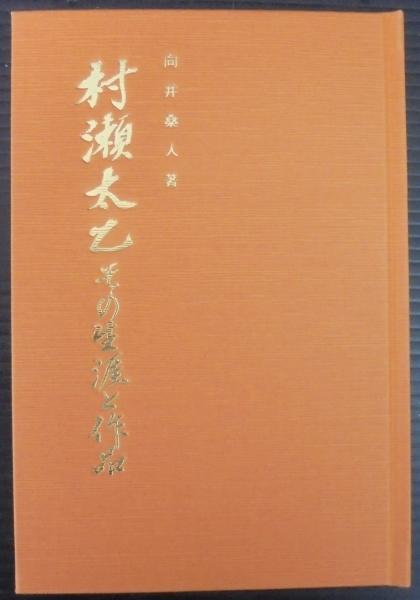 向井桑人著
村瀬太乙その生涯と作品